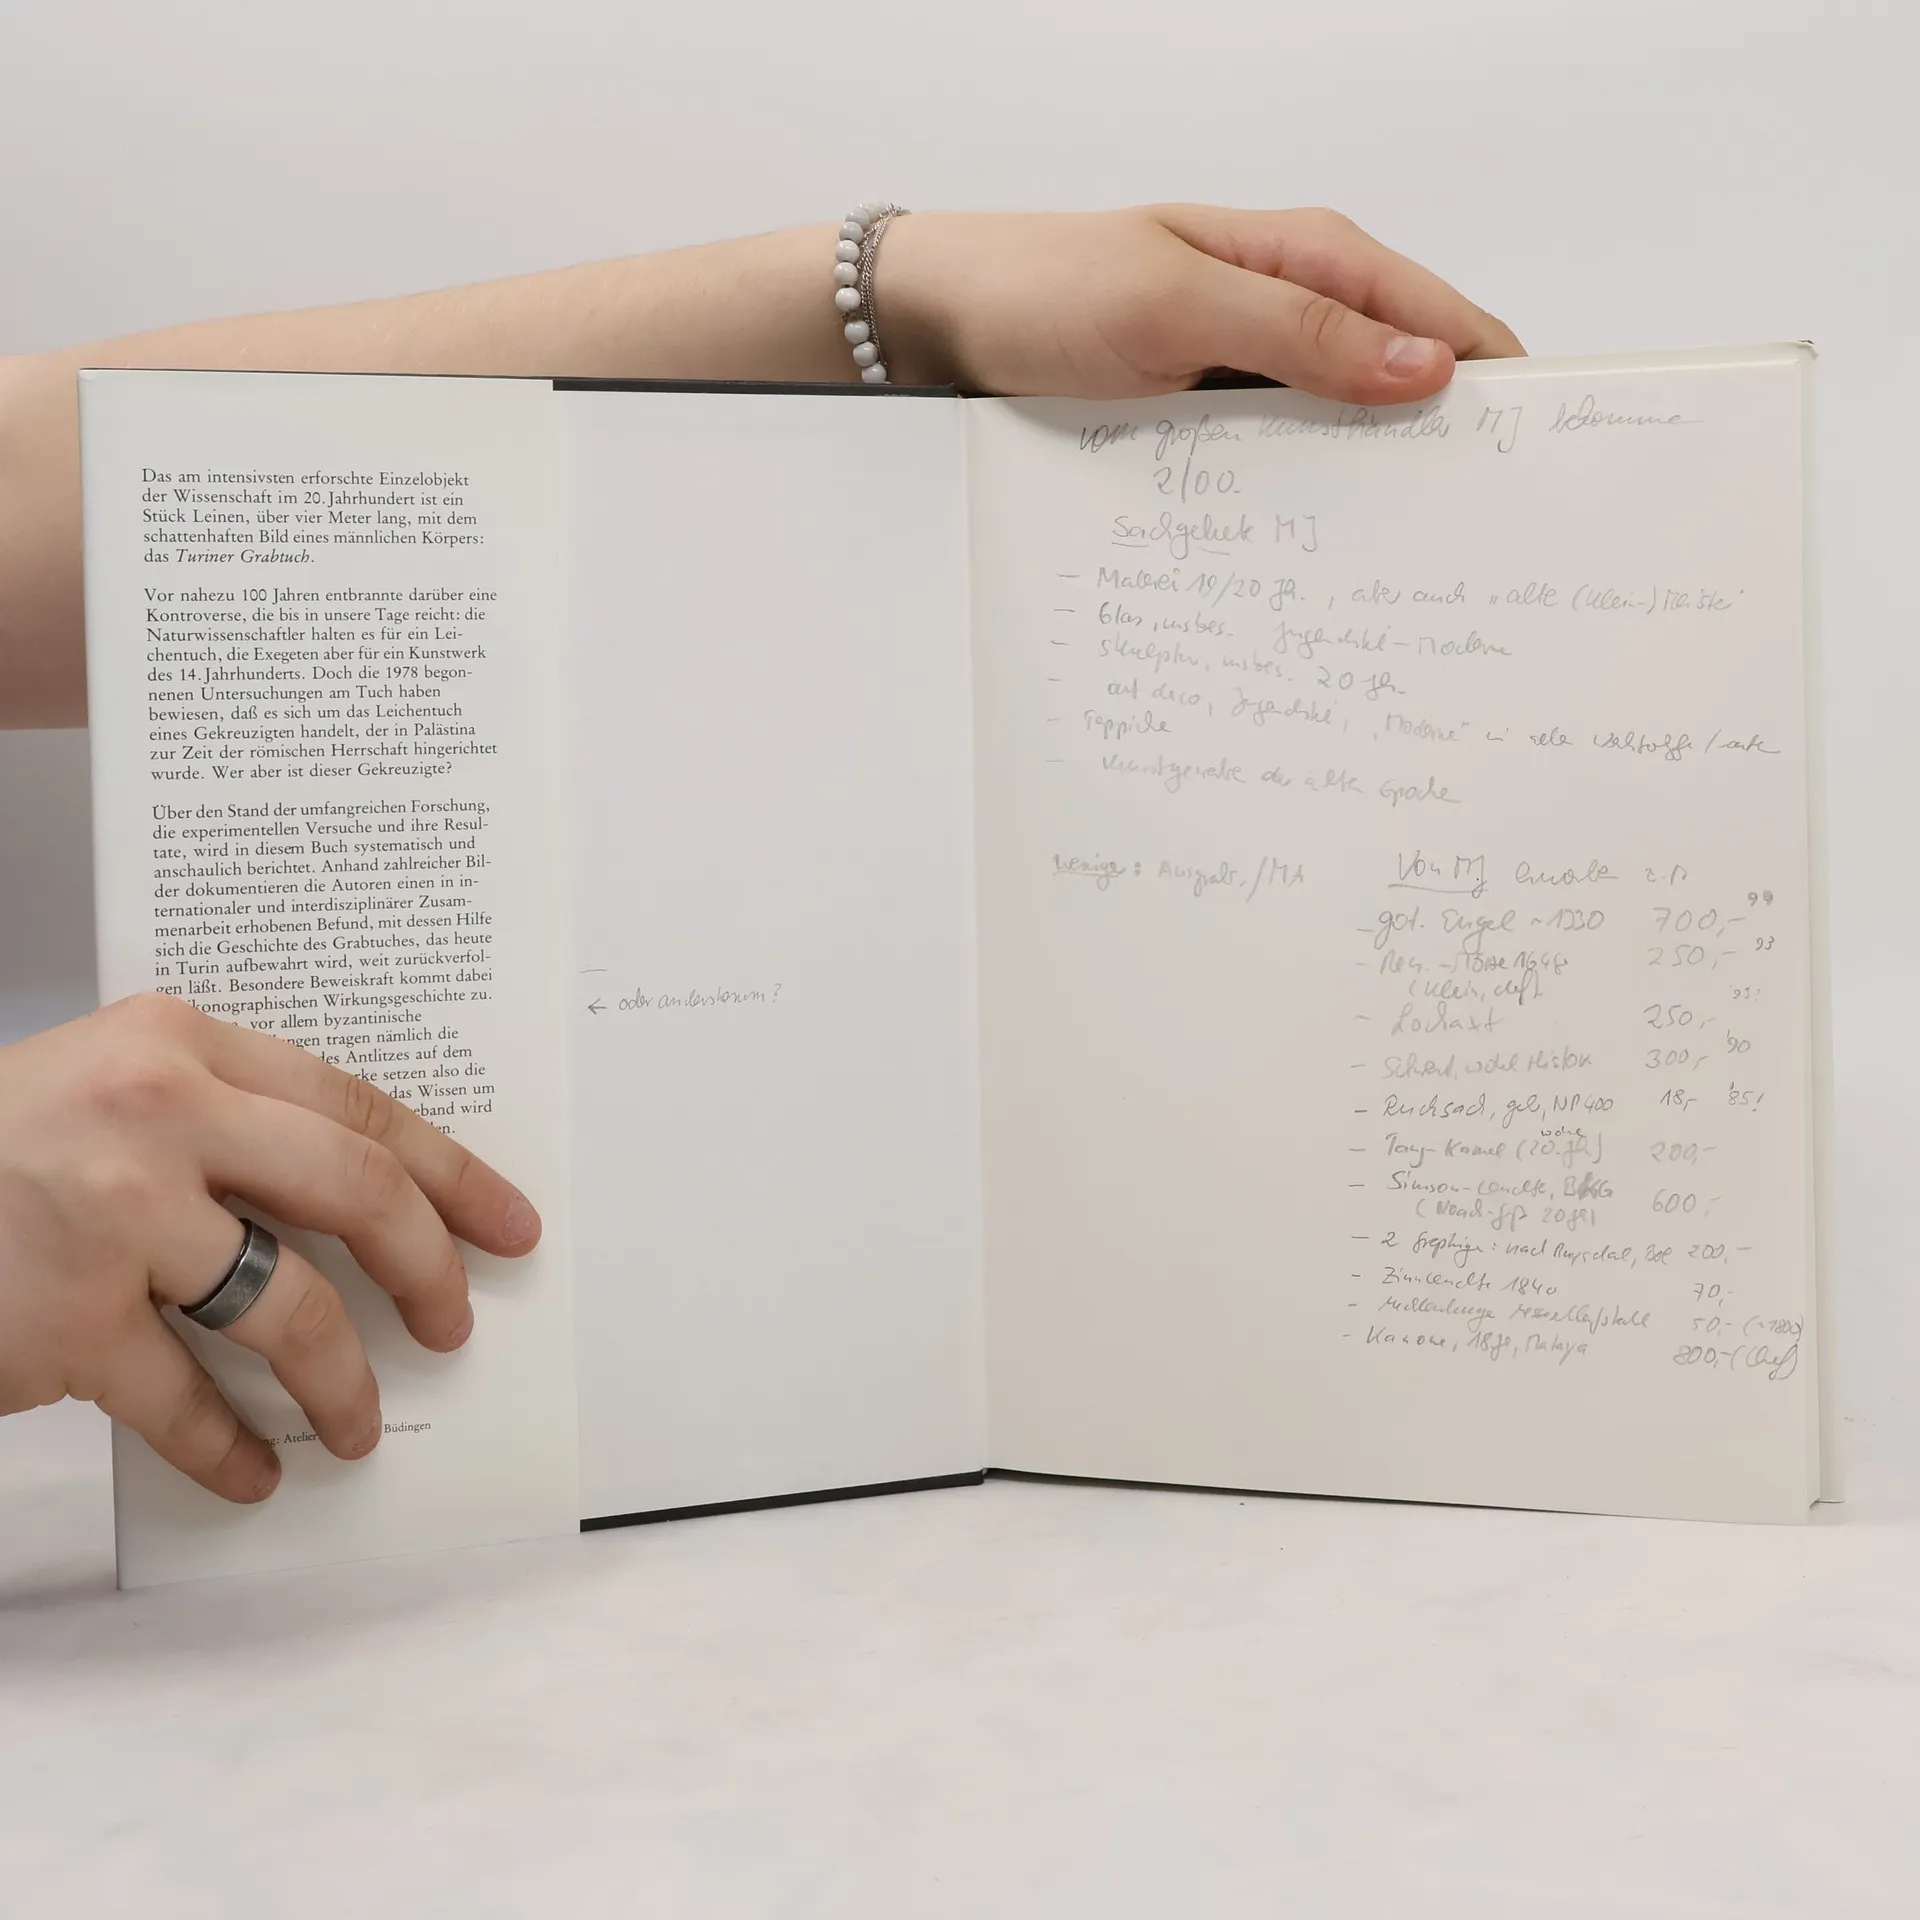 Das am intensivsten erforschte Einzelobjekt
der Wissenschaft im 20. Jahrhundert ist ein
Stück Leinen, über vier Meter lang, mit dem
schattenhaften Bild eines männlichen Körpers:
das Turiner Grabtuch.
Vor nahezu 100 Jahren entbrannte darüber eine
Kontroverse, die bis in unsere Tage reicht: die
Naturwissenschaftler halten es für ein Lei-
chentuch, die Exegeten aber für ein Kunstwerk
des 14. Jahrhunderts. Doch die 1978 begon-
nenen Untersuchungen am Tuch haben
bewiesen, daß es sich um das Leichentuch
eines Gekreuzigten handelt, der in Palästina
zur Zeit der römischen Herrschaft hingerichtet
wurde. Wer aber ist dieser Gekreuzigte?
Über den Stand der umfangreichen Forschung,
die experimentellen Versuche und ihre Resul-
tate, wird in diesem Buch systematisch und
anschaulich berichtet. Anhand zahlreicher Bil-
der dokumentieren die Autoren einen in in-
ternationaler und interdisziplinärer Zusam-
menarbeit erhobenen Befund, mit dessen Hilfe
sich die Geschichte des Grabtuches, das heute
in Turin aufbewahrt wird, weit zurückverfol-
gen läßt. Besondere Beweiskraft kommt dabei
konographischen Wirkungsgeschichte zu.
vor allem byzantinische
ngen tragen nämlich die
des Antlitzes auf dem
rke setzen also die
das Wissen um
eband wird
en.
ng: Atelier Büdingen
← oder andersherum?
vom großen Kunsthändler MJ bekomme
2/00.
Sachgebiete MJ
— Malerei 19/20 Jh., aber auch "alte (Klein-) Meister"
— Glas, insbes. Jugendstil – Moderne
— Skulptur, insbes. 20 Jh.
— art deco, Jugendstil, "Moderne" in
— Teppiche
— Kunstgewerbe der alten Epoche
wenige: Ausgrab./MA
Von MJ
— got. Engel ~1330 700,- 99
— 1648 250,- 93
(klein, def)
— Lochaxt 250,- 93!
— Schwert, wohl Histor. 300,- '90
— Rucksack, geb, NP 400 18,- '85!
— Tang-Kamel (wohl 20. Jh) 200,-
— Simson-Leuchte, 600,-
— 2 Graphiken: nach Ruysdael, 200,-
— Zinnleuchte 1840 70,-
— 50,- (~1800)
— Kanone, 18 Jh, Malaya 800,-